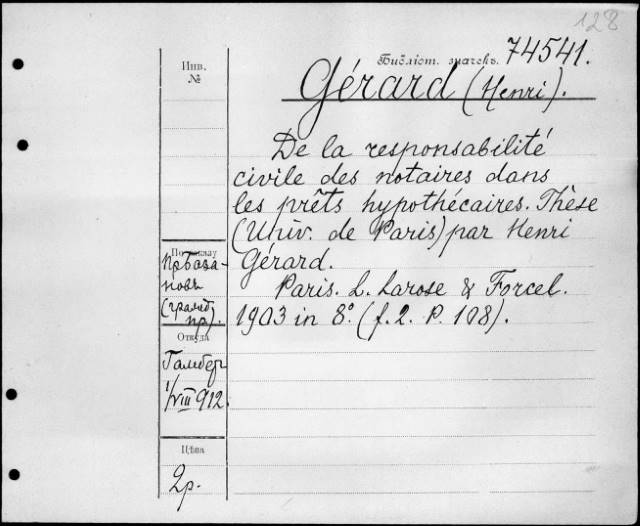 128
Библіот. значекъ. 74541.
Инв.
№
Gérard (Henri).
De la responsabilité
civile des notaires dans
les prêts hypothécaires. Thèse
(Univ. de Paris) par Henri
Gérard.
Paris. L. Larose & Forcel.
1903 in 8.° (f. 2. P. 108).
По складу
(гражд.
пр).
Откуда
Гамбер
1/VIII 912.
Цѣна
2р.